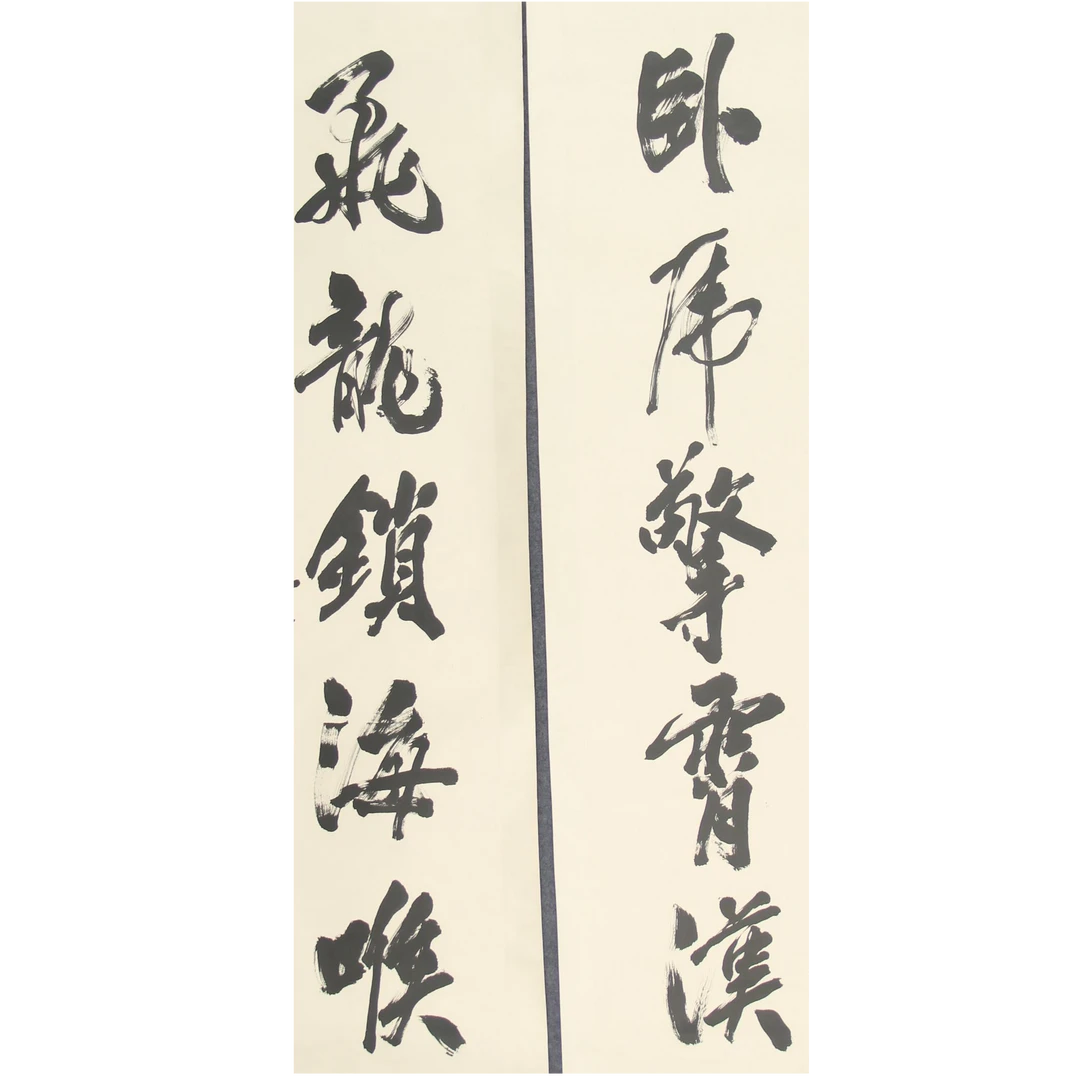 臥虎擎霄漢
飛龍鎖海喉